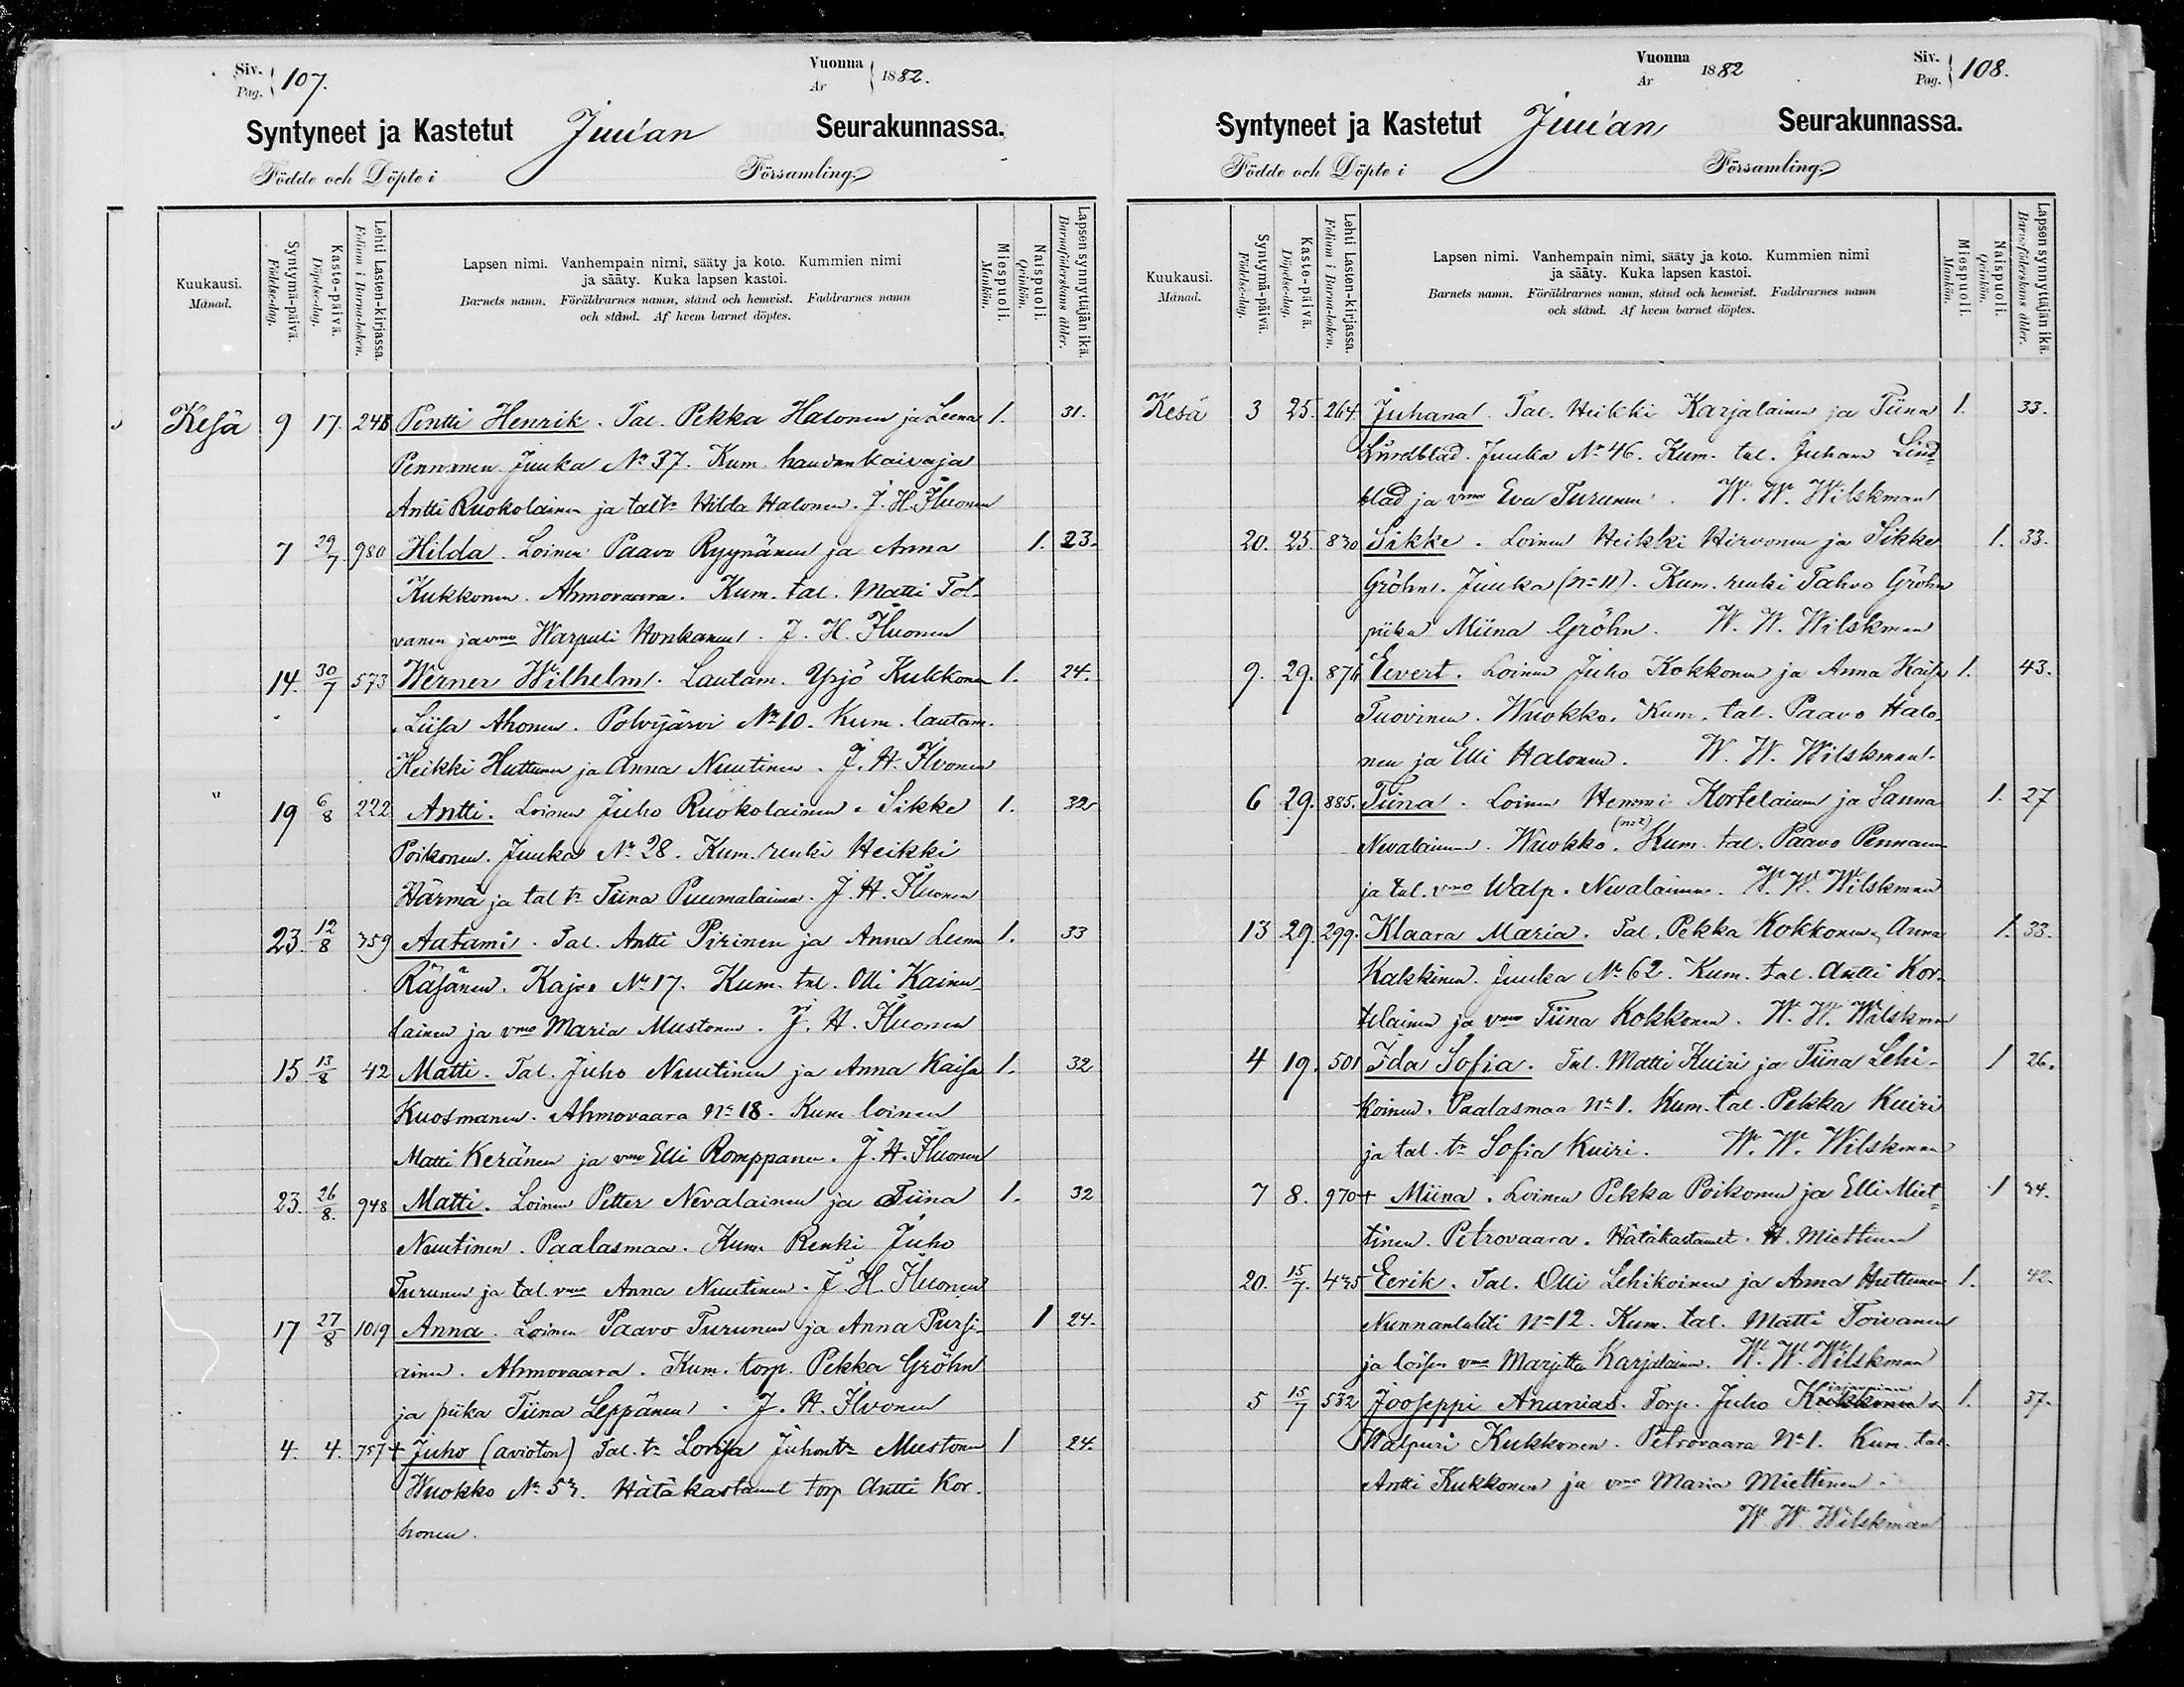 Siv. Pag. 107.
Vuonna År 1882.
Syntyneet ja Kastetut Juu'an Seurakunnassa.
Födde och Döpte i Församling.
Kuukausi. Månad.
Syntymä-päivä. Födelse-dag.
Kaste-päivä. Döpelse-dag.
Lehti Lasten-kirjassa. Folium i Barna-boken.
Lapsen nimi. Vanhempain nimi, sääty ja koto. Kummien nimi
ja sääty. Kuka lapsen kastoi.
Barnets namn. Föräldrarnes namn, stånd och hemvist. Faddrarnes namn
och stånd. Af hvem barnet döptes.
Miespuoli. Mankön.
Naispuoli. Qvinkön.
Lapsen synnyttäjän ikä. Barnaföderskans ålder.
Kesä 9 17. Pentti Henrik. Tal. Pekka Halonen ja Leena 1. 31.
Pennanen Juuka No 37. Kum. haudankaivaja
Antti Ruokolainen ja tal tr Hilda Halonen. J. H. Iluonen
7 29/7 980 Hilda. Loinen Paavo Ryynänen ja Anna 1. 23.
Kukkonen. Ahmovaara. Kum. tal. Matti Tol-
vanen ja vmo Warpuli Honkanen. J. H. Iluonen
14. 30/7 573 Werner Wilhelm. Lautam. Yrjö Kukkonen 1. 24.
Liisa Ahonen. Polvijärvi No 10. Kum. lautam.
Heikki Huttunen ja Anna Nuutinen. J. H. Ilvonen
" 19 6/8 222 Antti. Loinen Juho Ruokolainen. Sikke 1. 32
Poikonen. Juuka No 28. Kum. renki Heikki
Härmä ja tal tr Tiina Puumalainen. J. H. Iluonen
23. 12/8 759 Aatami. Tal. Antti Pirinen ja Anna Leena 1. 33
Räsänen. Kajoo No 17. Kum. tal. Olli Kainu-
lainen ja vmo Maria Mustonen. J. H. Iluonen
15 13/8 42 Matti. Tal. Juho Nuutinen ja Anna Kaisa 1. 32
Kuosmanen. Ahmovaara No 18. Kum loinen
Matti Keränen ja vmo Elli Romppanen. J. H. Iluonen
23. 26/8. 948 Matti. Loinen Petter Nevalainen ja Tiina 1. 32
Nuutinen. Paalasmaa. Kum. Renki Juho
Turunen ja tal. vmo Anna Nuutinen. J. H. Iluonen
17 27/8 1019 Anna. Loinen Paavo Turunen ja Anna Pursi- 1 24.
ainen. Ahmovaara. Kum. torp. Pekka Gröhn
ja piika Tiina Leppänen. J. H. Ilvonen
4. 4. 757 + Juho (avioton) Tal. tr Lovisa Juhontr Mustonen 1 24.
Wuokko No Hätäkastanut torp Antti Kor-
honen.
Siv. Pag. 108.
Vuonna År 1882
Syntyneet ja Kastetut Juu'an Seurakunnassa.
Födde och Döpte i Församling.
Kuukausi. Månad.
Syntymä-päivä. Födelse-dag.
Kaste-päivä. Döpelse-dag.
Lehti Lasten-kirjassa. Folium i Barna-boken.
Lapsen nimi. Vanhempain nimi, sääty ja koto. Kummien nimi
ja sääty. Kuka lapsen kastoi.
Barnets namn. Föräldrarnes namn, stånd och hemvist. Faddrarnes namn
och stånd. Af hvem barnet döptes.
Miespuoli. Mankön.
Naispuoli. Qvinkön.
Lapsen synnyttäjän ikä. Barnaföderskans ålder.
Kesä 3 25. 264 Juhana. Tal. Heikki Karjalainen ja Tiina 1. 33.
Lundblad. Juuka No 46. Kum. tal. Juhana Lind-
blad ja vmo Eva Turunen. W. W. Wilskman
20. 25. 830 Sikke. Loinen Heikki Hirvonen ja Sikke 1. 33.
Gröhn. Juuka (No 11). Kum. renki Tahvo Gröhn
piika Miina Gröhn. W. W. Wilskman
9. 29. 876 Eevert. Loinen Juho Kokkonen ja Anna Kaisa 1. 43.
Tuovinen. Wuokko. Kum. tal. Paavo Halo-
nen ja Elli Halonen. W. W. Wilskman.
6 29. 885. Tiina. Loinen Hemmi Kortelainen ja Sanna 1. 27
Nevalainen. Wuokko. (no 2) Kum. tal. Paavo Pennanen
ja tal. vmo Walp. Nevalainen. W. W. Wilskman
13 29. 299. Klaara Maria. Tal. Pekka Kokkonen, Anna 1. 33.
Kakkinen. Juuka No 62. Kum. tal. Antti Kor-
telainen ja vmo Tiina Kokkonen. W. W. Wilskman
4 19. 501 Ida Sofia. Tal. Matti Kuiri ja Tiina Lehi- 1 26.
koinen. Paalasmaa No 1. Kum. tal. Pekka Kuiri
ja tal. tr Sofia Kuiri. W. W. Wilskman
7 8. 970 + Miina. Loinen Pekka Poikonen ja Elli Miet- 1
tinen. Petrovaara. Hätäkastanut. H. Miettinen
20. 15/7. 435 Eerik. Tal. Olli Lehikoinen ja Anna Huttunen 1. 42.
Nunnanlahti No 12. Kum. tal. Matti Toivanen
ja loisen vmo Marjetta Karjalainen. W. W. Wilskman
5 15/7 532 Jooseppi Ananias. Torp. Juho 1. 37.
Walpuri Kukkonen. Petrovaara No 1. Kum. tal.
Antti Kukkonen ja vmo Maria Miettinen.
W. W. Wilskman